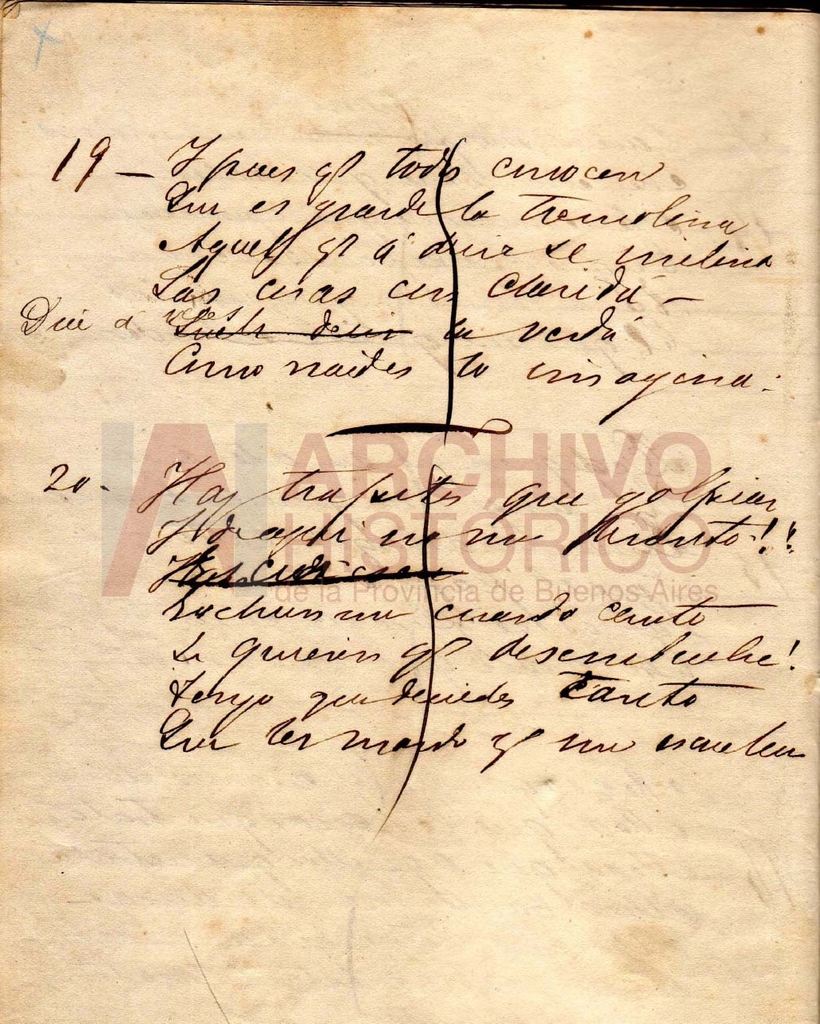 19 — Y pues qe todos conocen
Que es grande la tremolina
Aquel qe á decir se inclina
Las cosas con claridá —
Dice á veces la verdá
Como naides lo imagina.
20 - Hay trapitos que golpiar
Y de aqui no me levanto!!
Escuchenme cuando canto
Si quieren qe desembuche!
Tengo que decirles tanto
Que les mando qe me escuchen
ARCHIVO
HISTÓRICO
de la Provincia de Buenos Aires